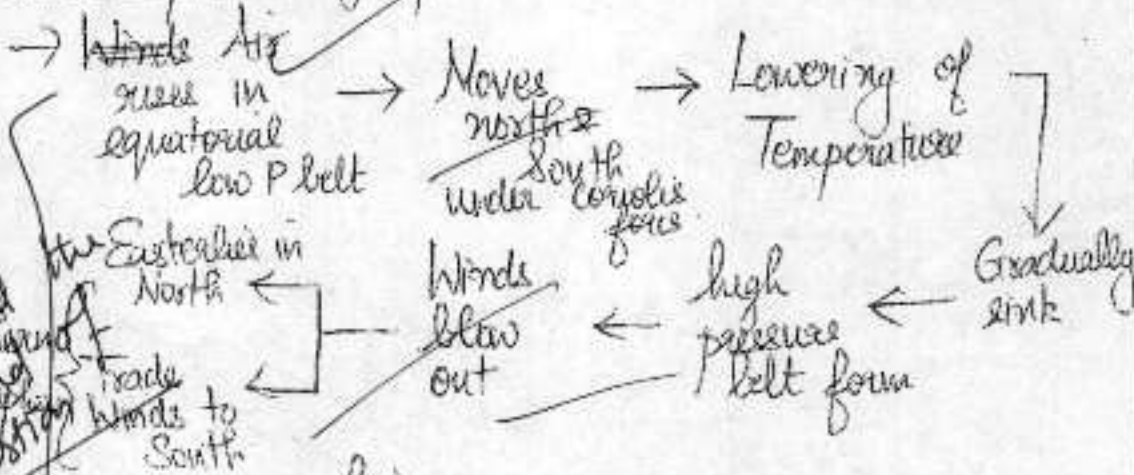 → Winds Air
rises in
equatorial
low P belt
→ Moves
north &
South
under coriolis
force
→ Lowering of
Temperature
Gradually
sink
← high
pressure
belt form
← Winds
blow
out
Easterlies in
North
Trade
Winds to
South